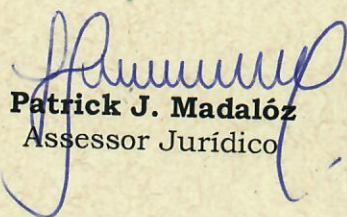 Patrick J. Madalóz
Assessor Jurídico